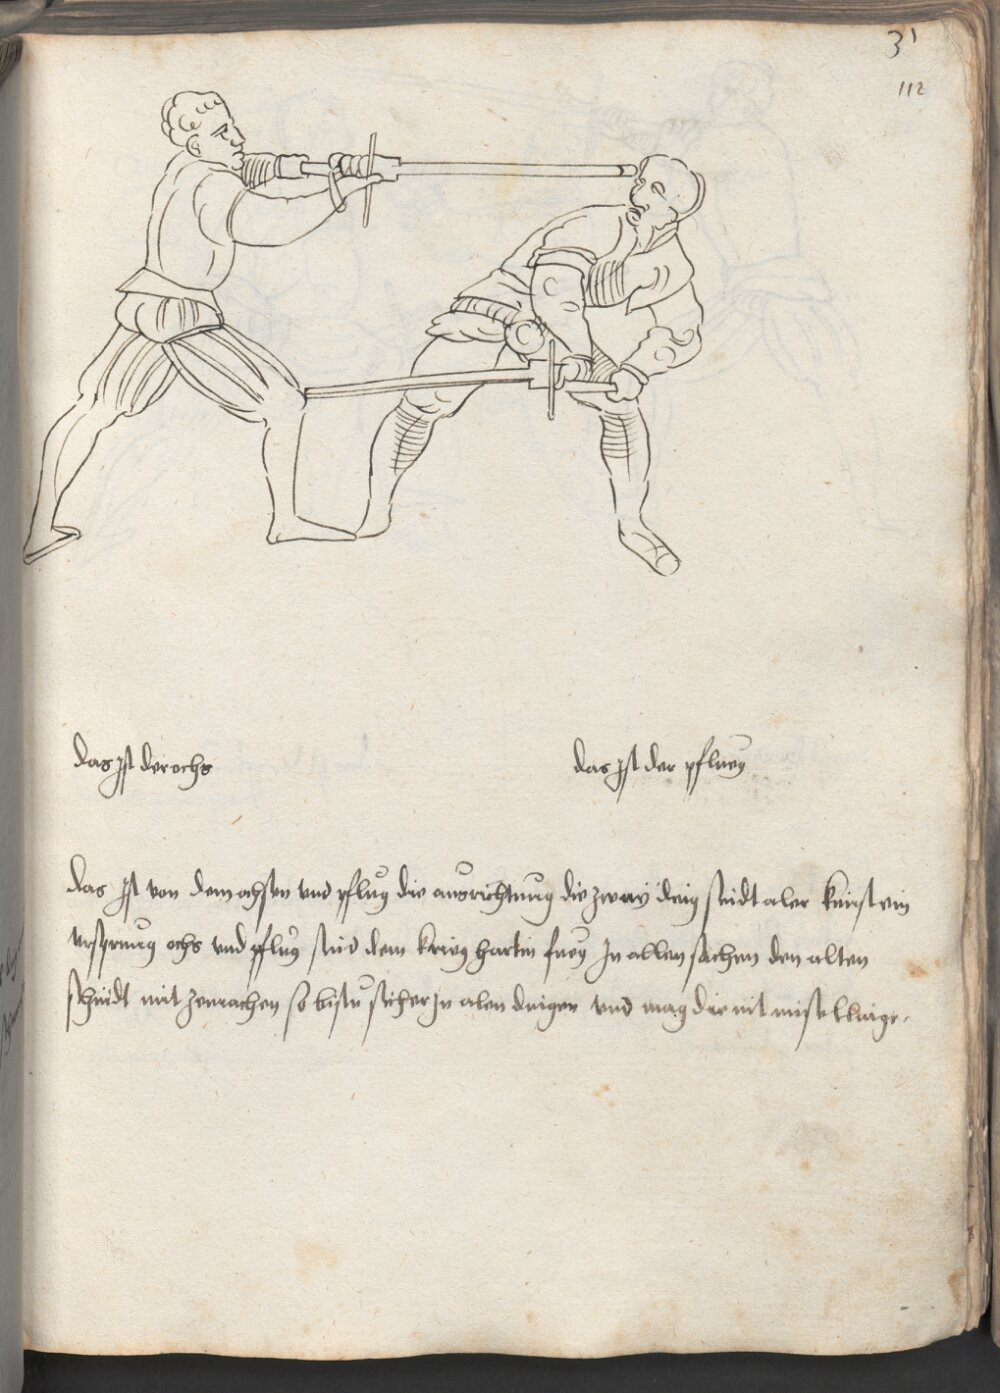 31
112
das Jst der ochs
das Jst der pflueg
das Jst von dem ochsen vnd pflug die ausrichtung die zway ding sindt aler kunst ein
vrsprung ochs vnd pflug sind dem krieg hart in fueg Jn allen sachen den alten
schnidt mit zemachen so bistu sicher Jn alen dingen vnd mag dir nit miselling